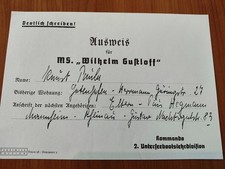 Deutlich schreiben!
Ausweis
für
MS. „Wilhelm Gustloff"
Name:
Bisherige Wohnung: Gotenhafen - Hermann Göringstr. 27
Anschrift der nächsten Angehörigen: Eltern -
Mannheim - Gustav Nachtigalstr. 83
Kommando
2. Unterseebootslehrdivision